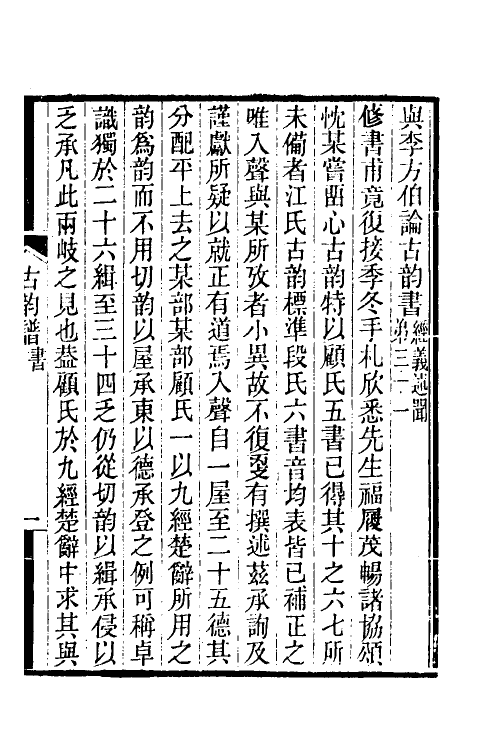 與李方伯論古韵書 經義述聞弟三十一
修書甫竟復接季冬手札欣悉先生福履茂暢諸協頌
忱某嘗畱心古韵特以顧氏五書已得其十之六七所
未備者江氏古韵標準段氏六書音均表皆已補正之
唯入聲與某所攷者小異故不復更有撰述茲承詢及
謹獻所疑以就正有道焉入聲自一屋至二十五德其
分配平上去之某部某部顧氏一以九經楚辭所用之
韵爲韵而不用切韵以屋承東以德承登之例可稱卓
識獨於二十六緝至三十四乏仍從切韵以緝承侵以
乏承凡此兩岐之見也葢顧氏於九經楚辭中求其與
古韵譜書
一